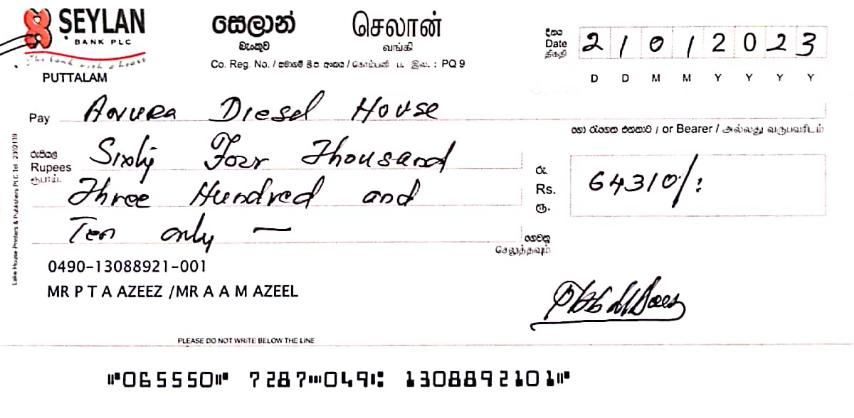 SEYLAN
BANK PLC
The bank with a heart
PUTTALAM
සෙලාන්
බැංකුව
செலான்
வங்கி
Co. Reg. No. / සමාගම් ලි.ප. අංකය / கொம்பனி ப. இல. : PQ 9
දිනය
Date
திகதி
2 1 0 1 2 0 2 3
D D M M Y Y Y Y
Pay Anura Diesel House
හෝ රැගෙන එනතාට / or Bearer / அல்லது வருபவரிடம்
රුපියල්
Rupees
ரூபாய்
Sixty Four Thousand
Three Hundred and
Ten only —
රු.
Rs.
ரூ.
64310/:
ගෙවනු
செலுத்தவும்
0490-13088921-001
MR P T A AZEEZ /MR A A M AZEEL
Lake House Printers & Publishers PLC Tel
PLEASE DO NOT WRITE BELOW THE LINE
⑈065550⑈ 7287⑉049⑆ 1308892101⑈